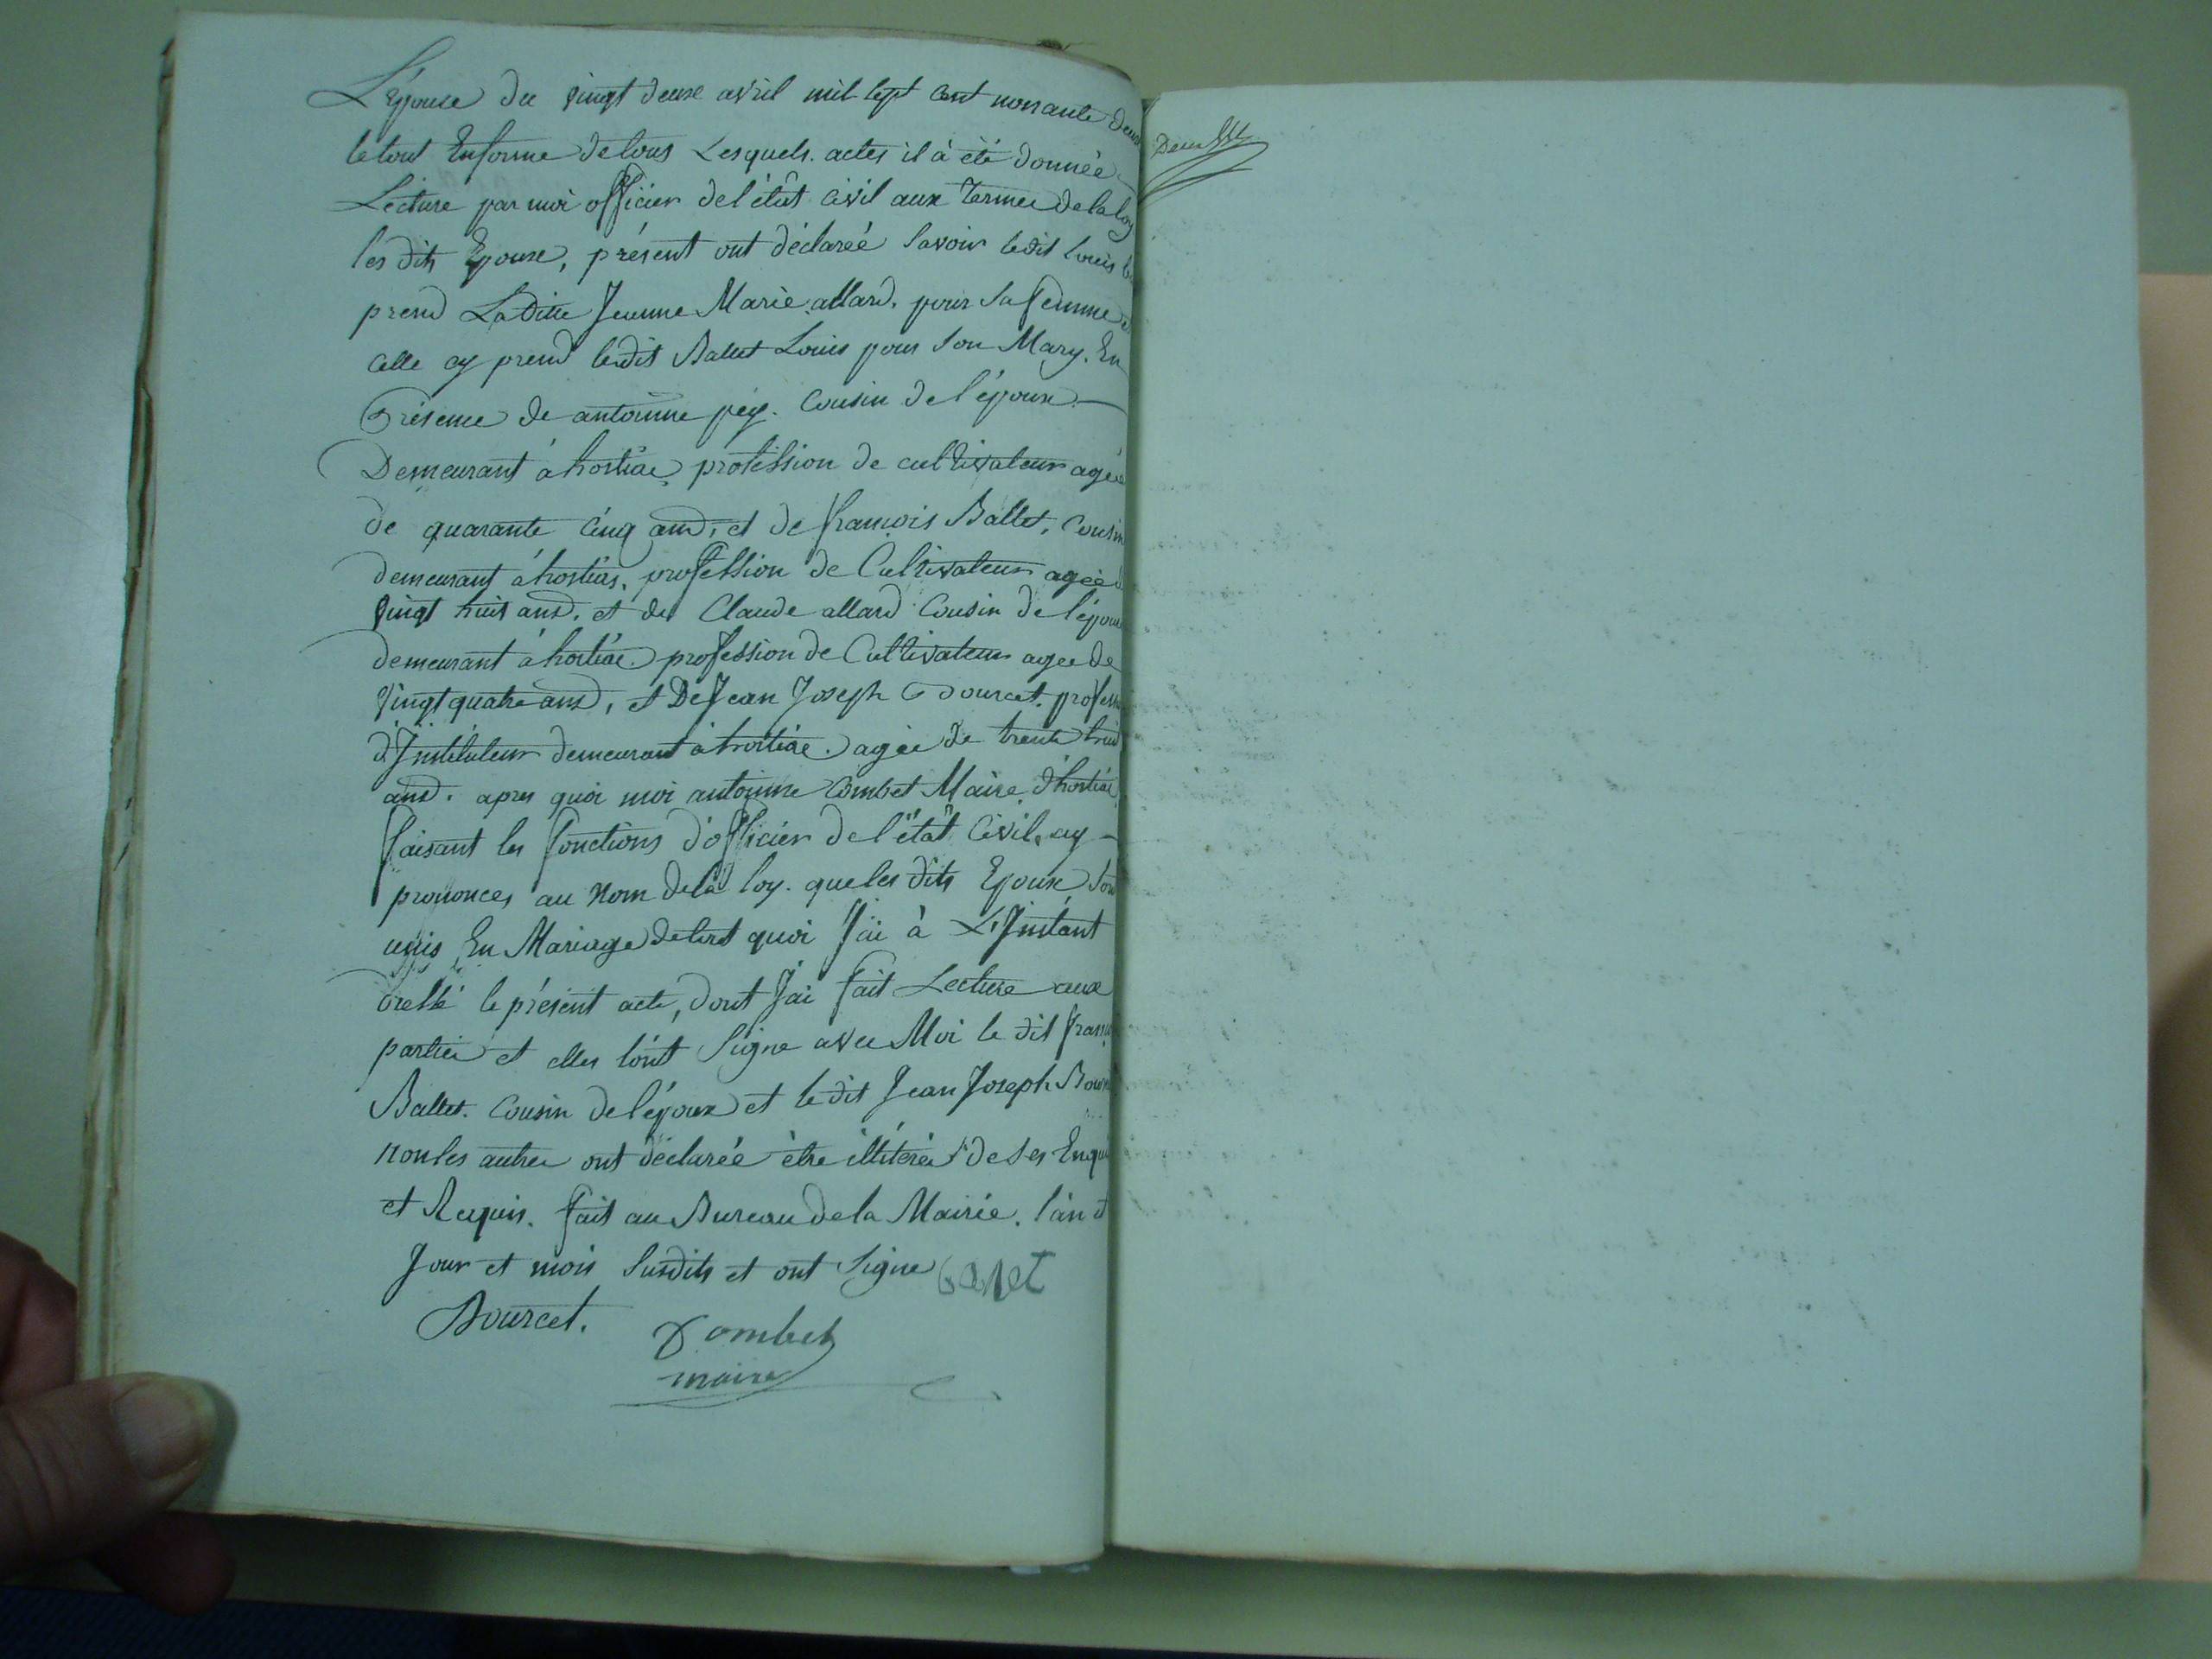 L'Epouse du vingt deux avril mil sept cent nonante deux
le tout Enforme de tous Lesquels actes il à été donnée
Lecture par moi officier de l'étât Civil aux Termes de la loy
les dits Epoux, présent ont déclareé Savoir ledit Louis
prend Laditte Jeanne Marie allard, pour Sa femme et
Celle cy prend ledit Ballet Louis pour Son Mary. En
Présence de antoinne pey. Cousin de l'époux
Demeurant à hostiaz profession de cultivateur ageé
de quarante Cinq ans, et de françois Ballet, Cousin
demeurant à hostias, profession de Cultivateur ageé
Vingt huit ans, et de Claude allard Cousin de l'épouse
demeurant à hostiaz profession de Cultivateur agee de
Vingt quatre ans, et De Jean Joseph Bourcet. profession
d'Instituteur demeurant à hostiaz. agée de trente huit
ans. apres quoi moi antoinne Combet Maire d'hostiaz
faisant les fonctions d'officier de l'état Civil, ay
prononces au nom dela loy. que les dits Epoux Sont
unis En Mariage de tout quoi J'ai à L'Instant
dressé le présent acte, dont J'ai fait Lecture aux
parties et elles l'ont Signe avec Moi le dit françois
Ballet. Cousin de l'époux et le dit Jean Joseph Bourcet
non les autres ont déclarée être illiterés de ses Enquis
et Requis. fait au Bureau de la Mairie. l'àn et
Jour et mois Susdits et ont Signe Balet
Bourcet. Combet
maire
Deux